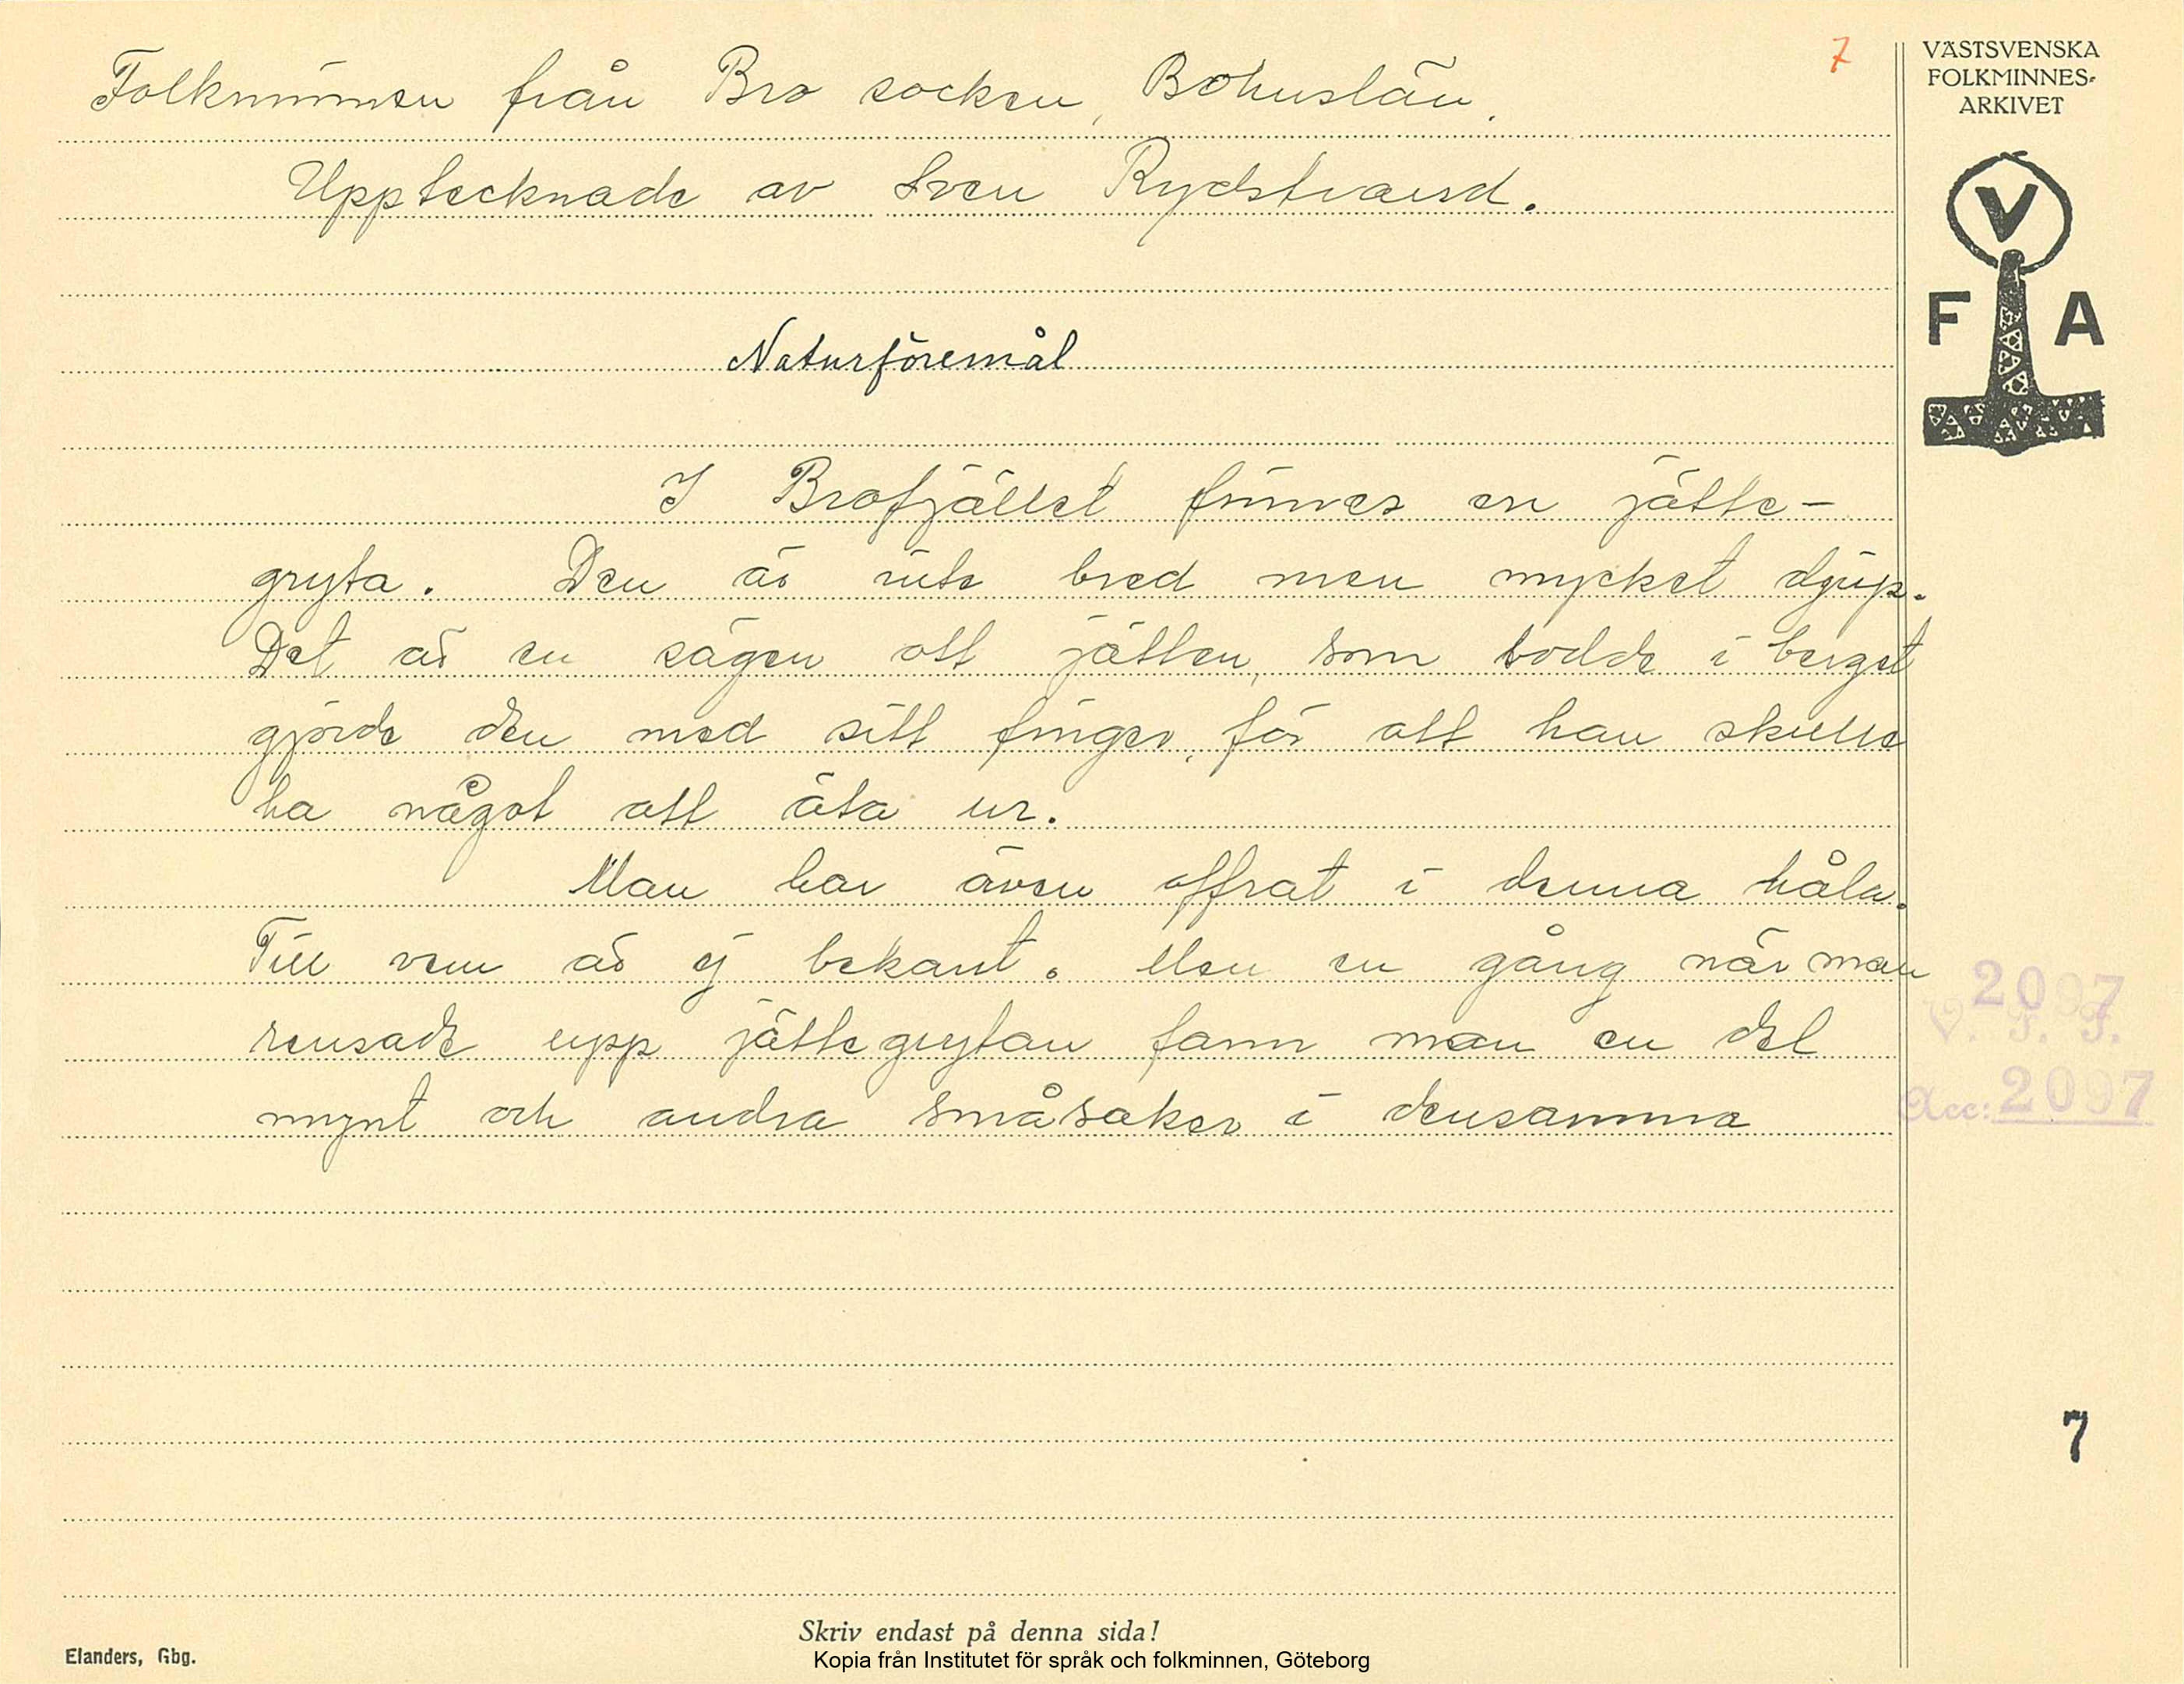 Folkminnen från Bro socken, Bohuslän.
7
Upptecknade av Sven Rydstrand.
Naturföremål
I Brofjället finnes en jätte-
gryta. Den är inte bred men mycket djup.
Det är en sägen att jätten, som bodde i berget
gjorde den med sitt finger, för att han skulle
ha något att äta ur.
Man har även offrat i denna håla.
Till vem är ej bekant. Men en gång när man
rensade upp jättegrytan fann man en del
mynt och andra småsaker i densamma
VÄSTSVENSKA
FOLKMINNES-
ARKIVET
V
F A
2097
V. F. F.
Acc: 2097
7
Skriv endast på denna sida!
Elanders, Gbg.
Kopia från Institutet för språk och folkminnen, Göteborg